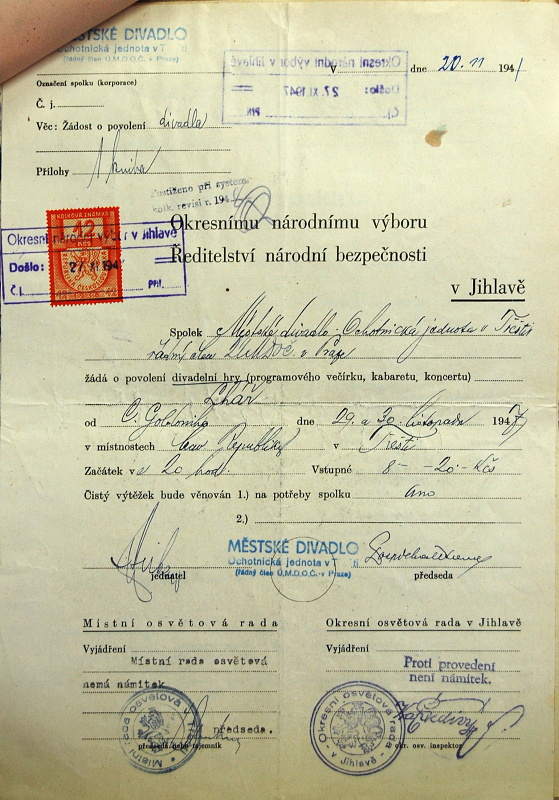 MĚSTSKÉ DIVADLO
Ochotnická jednota v T ti
(řádný člen Ú.M.D.O.Č. v Praze)
Okresní národní výbor v Jihlavě
Došlo: 27. XI. 1947
Čj. Příl.
V dne 20. 11 1947
Označení spolku (korporace)
Č. j.
Věc: Žádost o povolení divadla
Přílohy 1 kniha
Zjištěno při
kolk. revisi r. 194
KOLKOVÁ ZNÁMKA
12
KČS
Okresní národní výbor v Jihlavě
Došlo: 27. XI. 194
Čj. Příl.
Okresnímu národnímu výboru
Ředitelství národní bezpečnosti
v Jihlavě
Spolek Městské divadlo Ochotnická jednota v Třešti
řádný člen ÚMDOČ v Praze
žádá o povolení divadelní hry (programového večírku, kabaretu, koncertu)
Lhář
od C. Goldoniho dne 29. a 30. listopadu 1947
v místnostech Republika v Třešti
Začátek v 20 hod. Vstupné 8 - 20.- Kčs
Čistý výtěžek bude věnován 1.) na potřeby spolku ano
2.)
MĚSTSKÉ DIVADLO
Ochotnická jednota v T ti
(řádný člen Ú.M.D.O.Č. v Praze)
jednatel předseda
Místní osvětová rada
Vyjádření
Místní rada osvětová
nemá námitek
předseda.
předseda nebo tajemník
Místní rada osvětová v
Okresní osvětová rada v Jihlavě
Vyjádření
Proti provedení
není námitek.
Okresní osvětová rada
v Jihlavě
okr. osv. inspektor